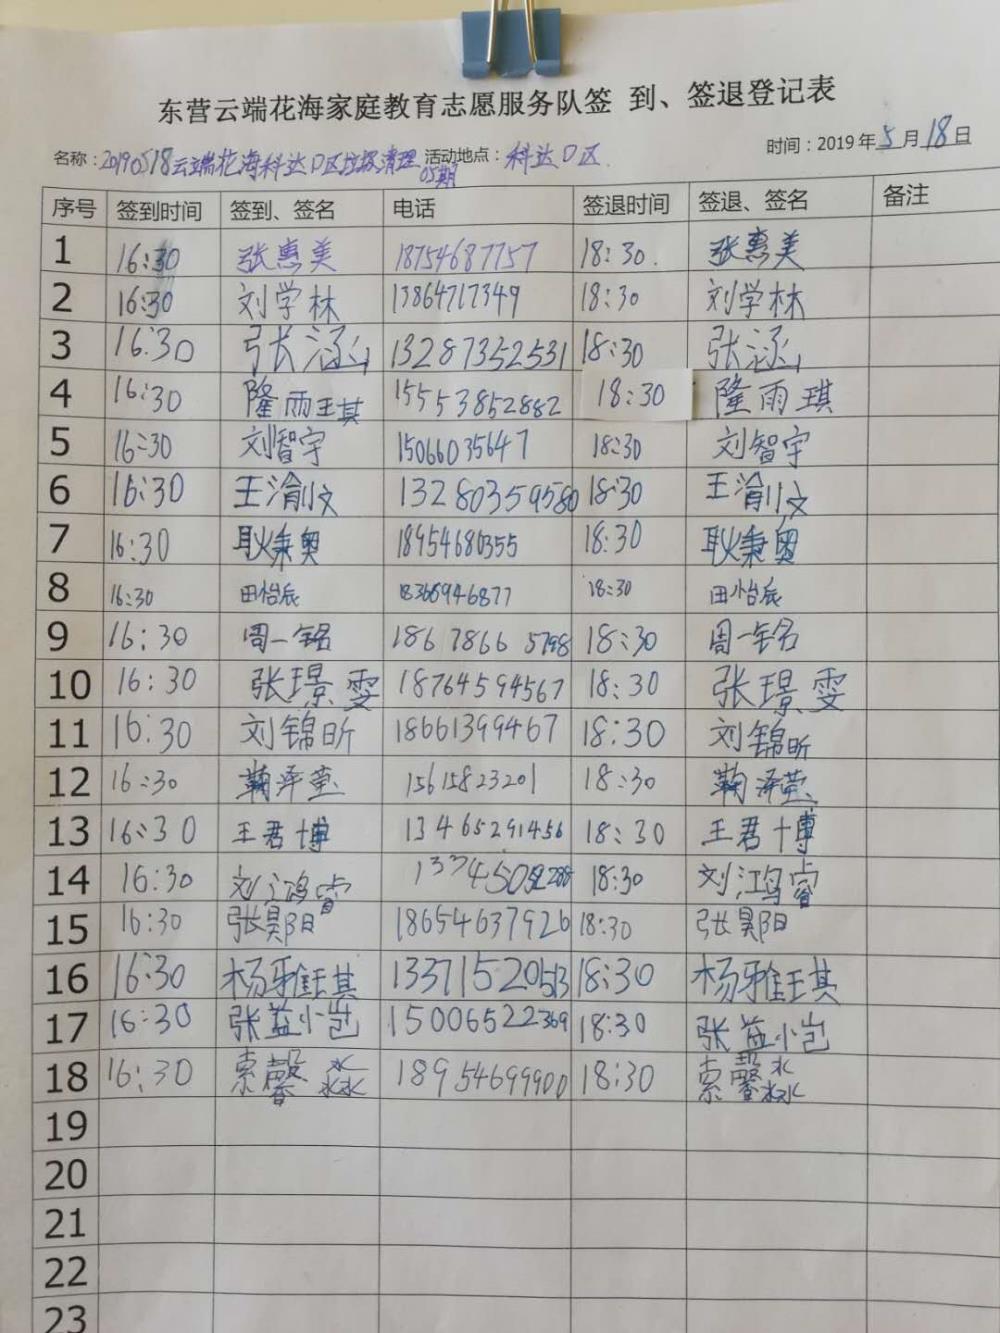 东营云端花海家庭教育志愿服务队签 到、签退登记表
名称：20190518云端花海科达D区垃圾清理05期 活动地点：科达D区 时间：2019年5月18日
序号 签到时间 签到、签名 电话 签退时间 签退、签名 备注
1 16:30 张惠美 18754687757 18:30. 张惠美
2 16:30 刘学林 13864717349 18:30 刘学林
3 16:30 张涵 13287352531 18:30 张涵
4 16:30 隆雨琪 15553852882 18:30 隆雨琪
5 16:30 刘智宇 15066035647 18:30 刘智宇
6 16:30 王渝文 13280359580 18:30 王渝文
7 16:30 耿秉奥 18954680355 18:30 耿秉奥
8 16:30 田怡辰 18366946877 18:30 田怡辰
9 16:30 周一铭 186 7866 5798 18:30 周一铭
10 16:30 张璟雯 18764594567 18:30 张璟雯
11 16:30 刘锦昕 18661399467 18:30 刘锦昕
12 16:30 鞠泽萤 15615823201 18:30 鞠泽萤
13 16:30 王君博 13465291456 18:30 王君博
14 16:30 刘鸿睿 18:30 刘鸿睿
15 16:30 张昊阳 18654637926 18:30 张昊阳
16 16:30 杨雅琪 13371520513 18:30 杨雅琪
17 16:30 张益 15006522369 18:30 张益
18 16:30 索馨淼 18954699900 18:30 索馨淼
19
20
21
22
23